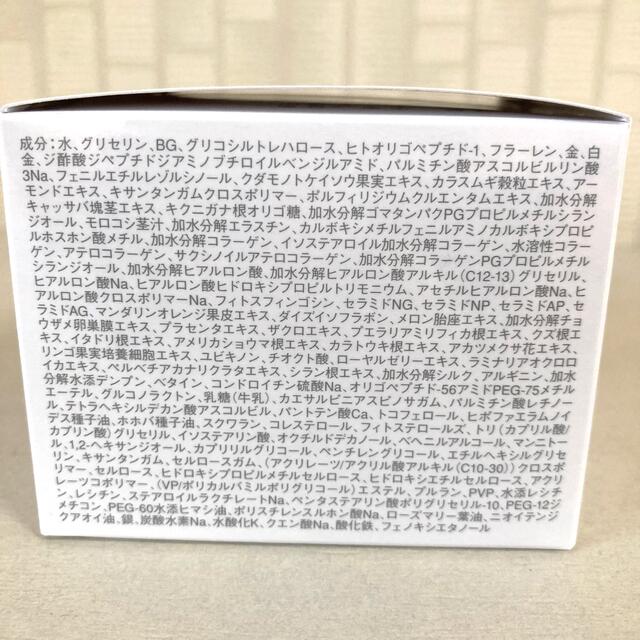 成分：水、グリセリン、BG、グリコシルトレハロース、ヒトオリゴペプチド-1、フラーレン、金、白
金、ジ酢酸ジペプチドジアミノブチロイルベンジルアミド、パルミチン酸アスコルビルリン酸
3Na、フェニルエチルレゾルシノール、クダモノトケイソウ果実エキス、カラスムギ穀粒エキス、アー
モンドエキス、キサンタンガムクロスポリマー、ポルフィリジウムクルエンタムエキス、加水分解
キャッサバ塊茎エキス、キクニガナ根オリゴ糖、加水分解ゴマタンパクPGプロピルメチルシラン
ジオール、モロコシ茎汁、加水分解エラスチン、カルボキシメチルフェニルアミノカルボキシプロピ
ルホスホン酸メチル、加水分解コラーゲン、イソステアロイル加水分解コラーゲン、水溶性コラー
ゲン、アテロコラーゲン、サクシノイルアテロコラーゲン、加水分解コラーゲンPGプロピルメチル
シランジオール、加水分解ヒアルロン酸、加水分解ヒアルロン酸アルキル(C12-13)グリセリル、
ヒアルロン酸Na、ヒアルロン酸ヒドロキシプロピルトリモニウム、アセチルヒアルロン酸Na、ヒ
アルロン酸クロスポリマーNa、フィトスフィンゴシン、セラミドNG、セラミドNP、セラミドAP、セ
ラミドAG、マンダリンオレンジ果皮エキス、ダイズイソフラボン、メロン胎座エキス、加水分解チョ
ウザメ卵巣膜エキス、プラセンタエキス、ザクロエキス、プエラリアミリフィカ根エキス、クズ根エ
キス、イタドリ根エキス、アメリカショウマ根エキス、カラトウキ根エキス、アカツメクサ花エキス、
リンゴ果実培養細胞エキス、ユビキノン、チオクト酸、ローヤルゼリーエキス、ラミナリアオクロロ
イカエキス、ペルベチアカナリクラタエキス、シラン根エキス、加水分解シルク、アルギニン、加水
分解水添デンプン、ベタイン、コンドロイチン硫酸Na、オリゴペプチド-56アミドPEG-75メチル
エーテル、グルコノラクトン、乳糖(牛乳)、カエサルピニアスピノサガム、パルミチン酸レチノー
ル、テトラヘキシルデカン酸アスコルビル、パントテン酸Ca、トコフェロール、ヒポファエラムノイ
デス種子油、ホホバ種子油、スクワラン、コレステロール、フィトステロールズ、トリ(カプリル酸/
カプリン酸)グリセリル、イソステアリン酸、オクチルドデカノール、ベヘニルアルコール、マンニトー
ル、1,2-ヘキサンジオール、カプリリルグリコール、ペンチレングリコール、エチルヘキシルグリセ
リン、キサンタンガム、セルロースガム、(アクリレーツ/アクリル酸アルキル(C10-30))クロスポ
リマー、セルロース、ヒドロキシプロピルメチルセルロース、ヒドロキシエチルセルロース、アクリ
レーツコポリマー、(VP/ポリカルバミルポリグリコール)エステル、プルラン、PVP、水添レシチ
ン、レシチン、ステアロイルラクチレートNa、ペンタステアリン酸ポリグリセリル-10、PEG-12ジ
メチコン、PEG-60水添ヒマシ油、ポリスチレンスルホン酸Na、ローズマリー葉油、ニオイテンジ
クアオイ油、銀、炭酸水素Na、水酸化K、クエン酸Na、酸化鉄、フェノキシエタノール